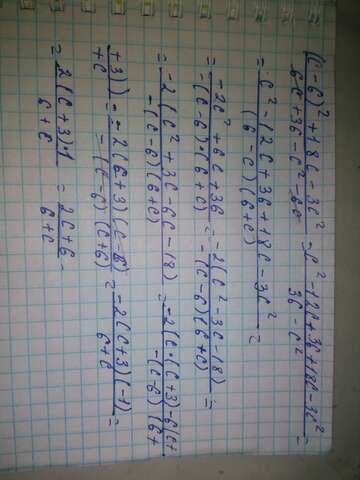 ((c-6)² + 18c - 3c²) / (6c + 36 - c² - 6c) = (c² - 12c + 36 + 18c - 3c²) / (36 - c²) =
= (c² - 12c + 36 + 18c - 3c²) / ((6-c)(6+c)) =
= (-2c² + 6c + 36) / (-(c-6)·(6+c)) = (-2(c² - 3c - 18)) / (-(c-6)(6+c)) =
= (-2(c² + 3c - 6c - 18)) / (-(c-6)(6+c)) = (-2(c·(c+3) - 6(c+ / (-(c-6)(6+
+3)) / +c) = (-2(c+3)(c-6)) / (-(c-6)(c+6)) = (-2(c+3)(-1)) / (6+c) =
= (2(c+3)·1) / (6+c) = (2c+6) / (6+c) -